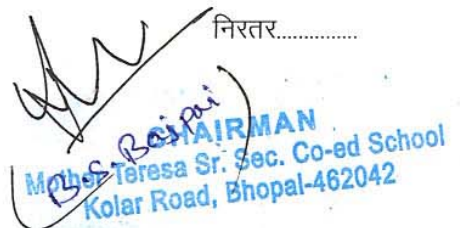 निरतर...............
(B.S. Bajpai)
CHAIRMAN
Mother Teresa Sr. Sec. Co-ed School
Kolar Road, Bhopal-462042